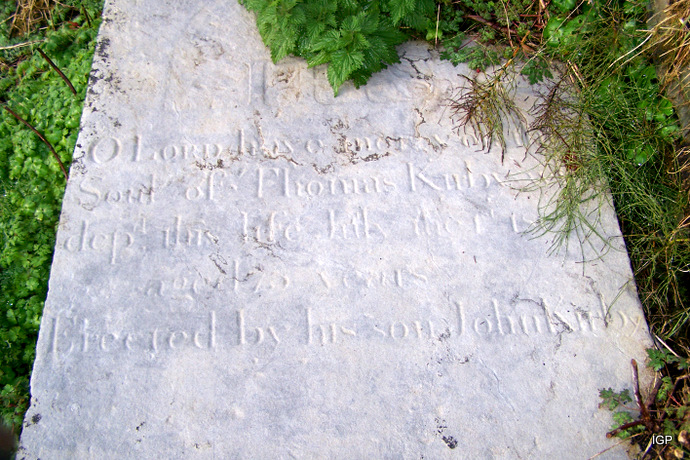 I H S
O Lord have mercy
Soul of Thomas Kirby
dep.ᵈ this life
aged 75 years
Erected by his son John Kirby
IGP